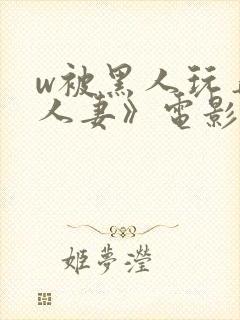 w被黑人玩
人妻》電影
姬夢瀅